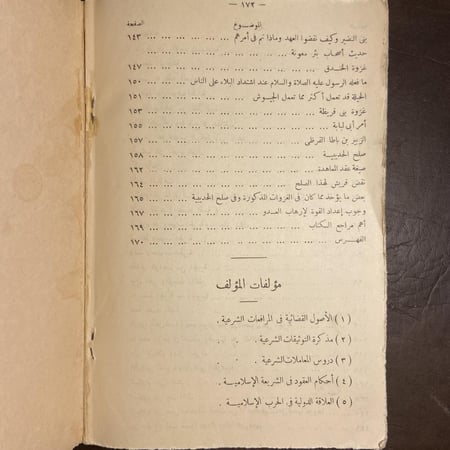 — ١٧٢ —
الموضوع الصفحة
بنى النضير وكيف نقضوا العهد وماذا تم فى أمرهم ... ... ... ١٤٣
حديث أصحاب بئر معونة ... ... ... ... ... ...
غزوة الخندق ... ... ... ... ... ... ... ١٤٧
ما فعله الرسول عليه الصلاة والسلام عند اشتداد البلاء على الناس ... ١٥٠
الحيلة قد تعمل أكثر مما تعمل الجيوش ... ... ... ... ١٥١
غزوة بنى قريظة ... ... ... ... ... ... ... ١٥٣
أمر أبى لبابة ... ... ... ... ... ... ... ١٥٥
الزبير بن باطا القرظى ... ... ... ... ... ... ١٥٧
صلح الحديبية ... ... ... ... ... ... ... ١٥٨
صيغة عقد المعاهدة ... ... ... ... ... ... ١٦٢
نقض قريش لهذا الصلح ... ... ... ... ... ... ١٦٤
بعض ما يؤخذ مما كان فى الغزوات المذكورة وفى صلح الحديبية ... ١٦٥
وجوب إعداد القوة لإرهاب العدو ... ... ... ... ... ١٦٧
أهم مراجع الكتاب ... ... ... ... ... ... ١٦٩
الفهرس ... ... ... ... ... ... ... ١٧٠
مؤلفات المؤلف
(١) الأصول القضائية فى المرافعات الشرعية .
(٢) مذكرة التوثيقات الشرعية . . .
(٣) دروس المعاملات الشرعية . . .
(٤) أحكام العقود فى الشريعة الإسلامية .
(٥) العلاقة الدولية فى الحرب الإسلامية .